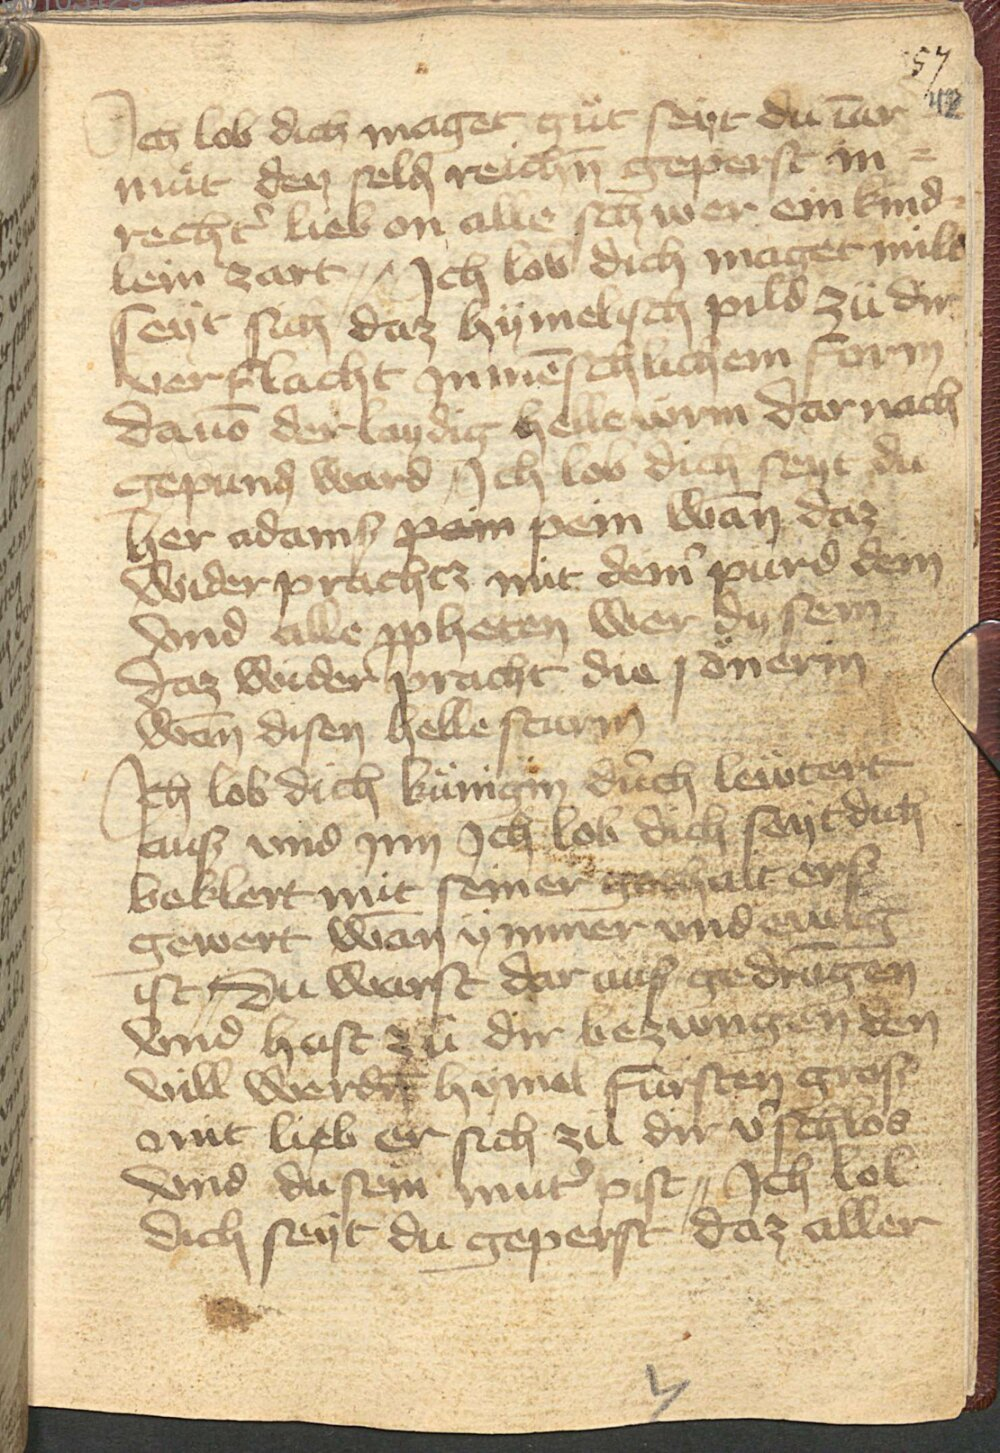 57
42
Ich lob dich maget gůt seyt du vor
můt den seldn̄ reichn̄ geperst in =
recht' lieb on alle schwer ein kind =
lein zart // Ich lob dich maget mild
seyt sich daz hymelisch pild zů dir
verflacht in mēschlichem form
dauō der laydig helle wrm dar nach
gepundn̄ ward / Ich lob dich seyt du
her adams pein pein wān daz
wider prachtz mit dein' purd dem
vnd alle ppheten wer dy sein
daz wider pracht die sönerin
wān disen helle sturm
Ich lob dich künigin durch lewtert
aus vnd inn Ich lob dich seyt dich
beklert mit seiner ers
gewert wān ymmer vnd ewig
ist / Du warst dar aus gedrūgen
vnd hast zů dir bezwngen den
vill werdn̄ hymel fürsten gros
mit lieb er sich zů dir v'schlos
vnd du sein můt' pist // Ich lol
dich seyt du geperst daz aller